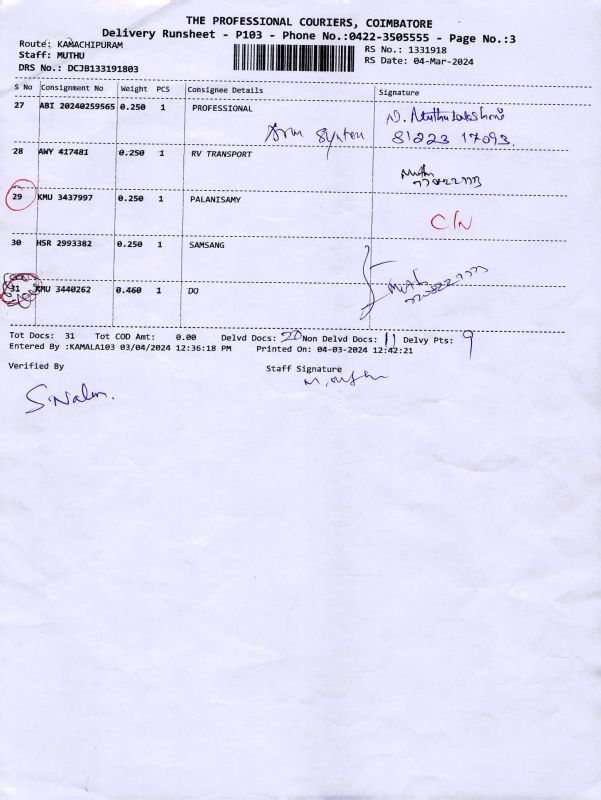 THE PROFESSIONAL COURIERS, COIMBATORE
Delivery Runsheet - P103 - Phone No.:0422-3505555 - Page No.:3
Route: KAMACHIPURAM RS No.: 1331918
Staff: MUTHU RS Date: 04-Mar-2024
DRS No.: DCJB133191803
S No Consignment No Weight PCS Consignee Details Signature
27 ABI 20240259565 0.250 1 PROFESSIONAL N. Muthulakshmi
Arm System 81223 17093.
28 AWY 417481 0.250 1 RV TRANSPORT Muthu
29 KMU 3437997 0.250 1 PALANISAMY
C/N
30 HSR 2993382 0.250 1 SAMSANG
31 KMU 3440262 0.460 1 DO
Tot Docs: 31 Tot COD Amt: 0.00 Delvd Docs: 20 Non Delvd Docs: 11 Delvy Pts: 9
Entered By :KAMALA103 03/04/2024 12:36:18 PM Printed On: 04-03-2024 12:42:21
Verified By Staff Signature